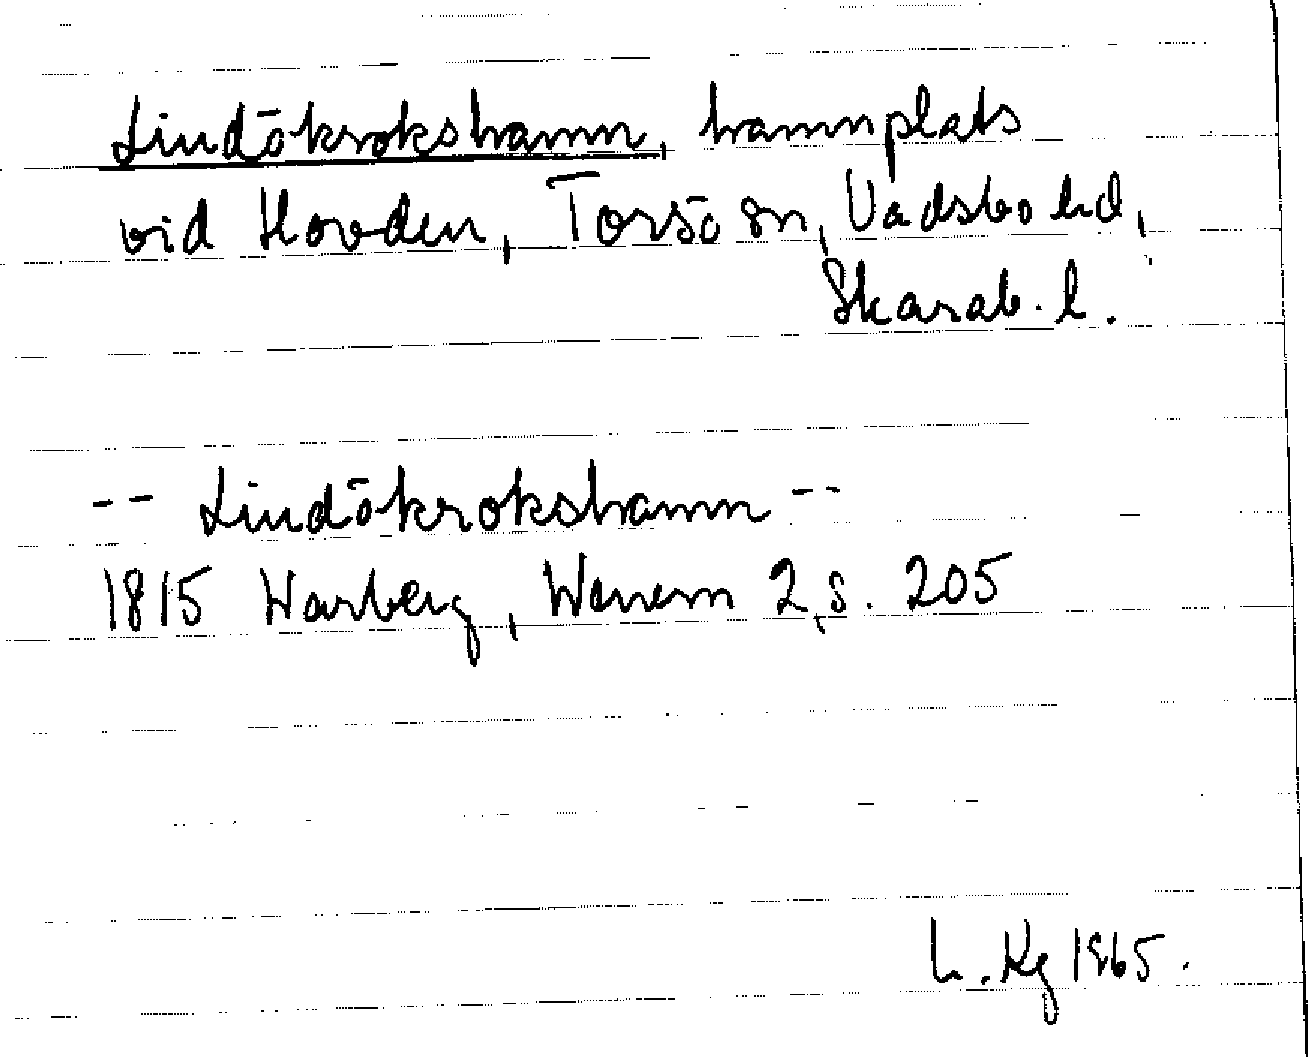 Lindökrokshamn, hamnplats
vid Hovden, Torsö sn, Vadsbo hd,
Skarab. l.
-- Lindökrokshamn --
1815 Warberg, Wenern 2, s. 205
L. Kg 1965.